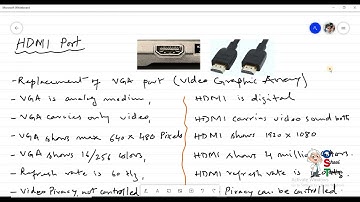 Microsoft Whiteboard
HDMI Port
- Replacement of VGA port (Video Graphic Array)
- VGA is analog medium, HDMI is digital
- VGA carries only video, HDMI carries video sound both
- VGA shows max 640 x 480 Pixels HDMI shows 1920 x 1080
- VGA shows 16/256 colors, HDMI shows 4 million
- Refresh rate is 60 Hz, HDMI refresh rate is
- Video Piracy not controlled Piracy can be controlled